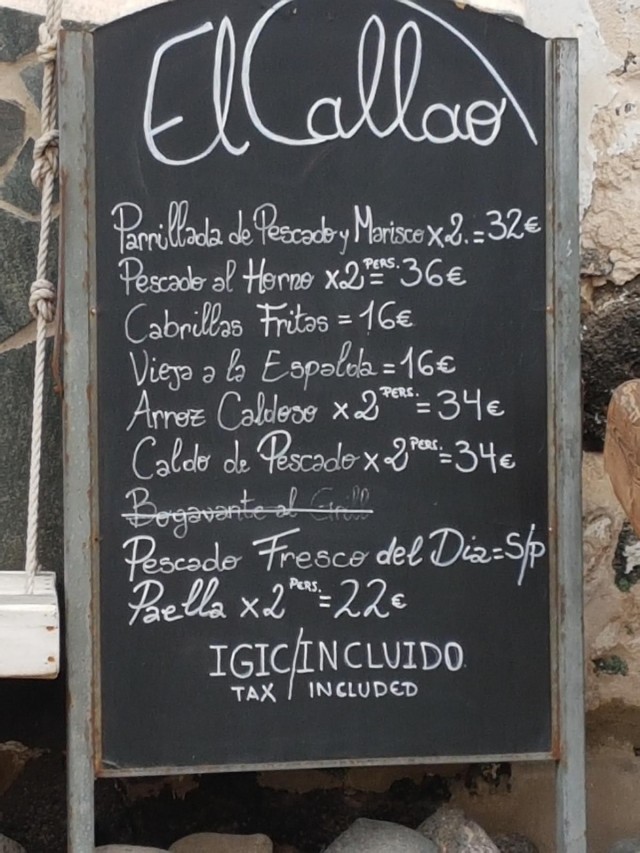 El Callao
Parrillada de Pescado y Marisco x2.=32€
Pescado al Horno x2 PERS.=36€
Cabrillas Fritas = 16€
Vieja a la Espalda = 16€
Arroz Caldoso x2 PERS.=34€
Caldo de Pescado x2 PERS.=34€
Bogavante al Grill
Pescado Fresco del Dia=S/P
Paella x2 PERS.=22€
IGIC/INCLUIDO
TAX / INCLUDED